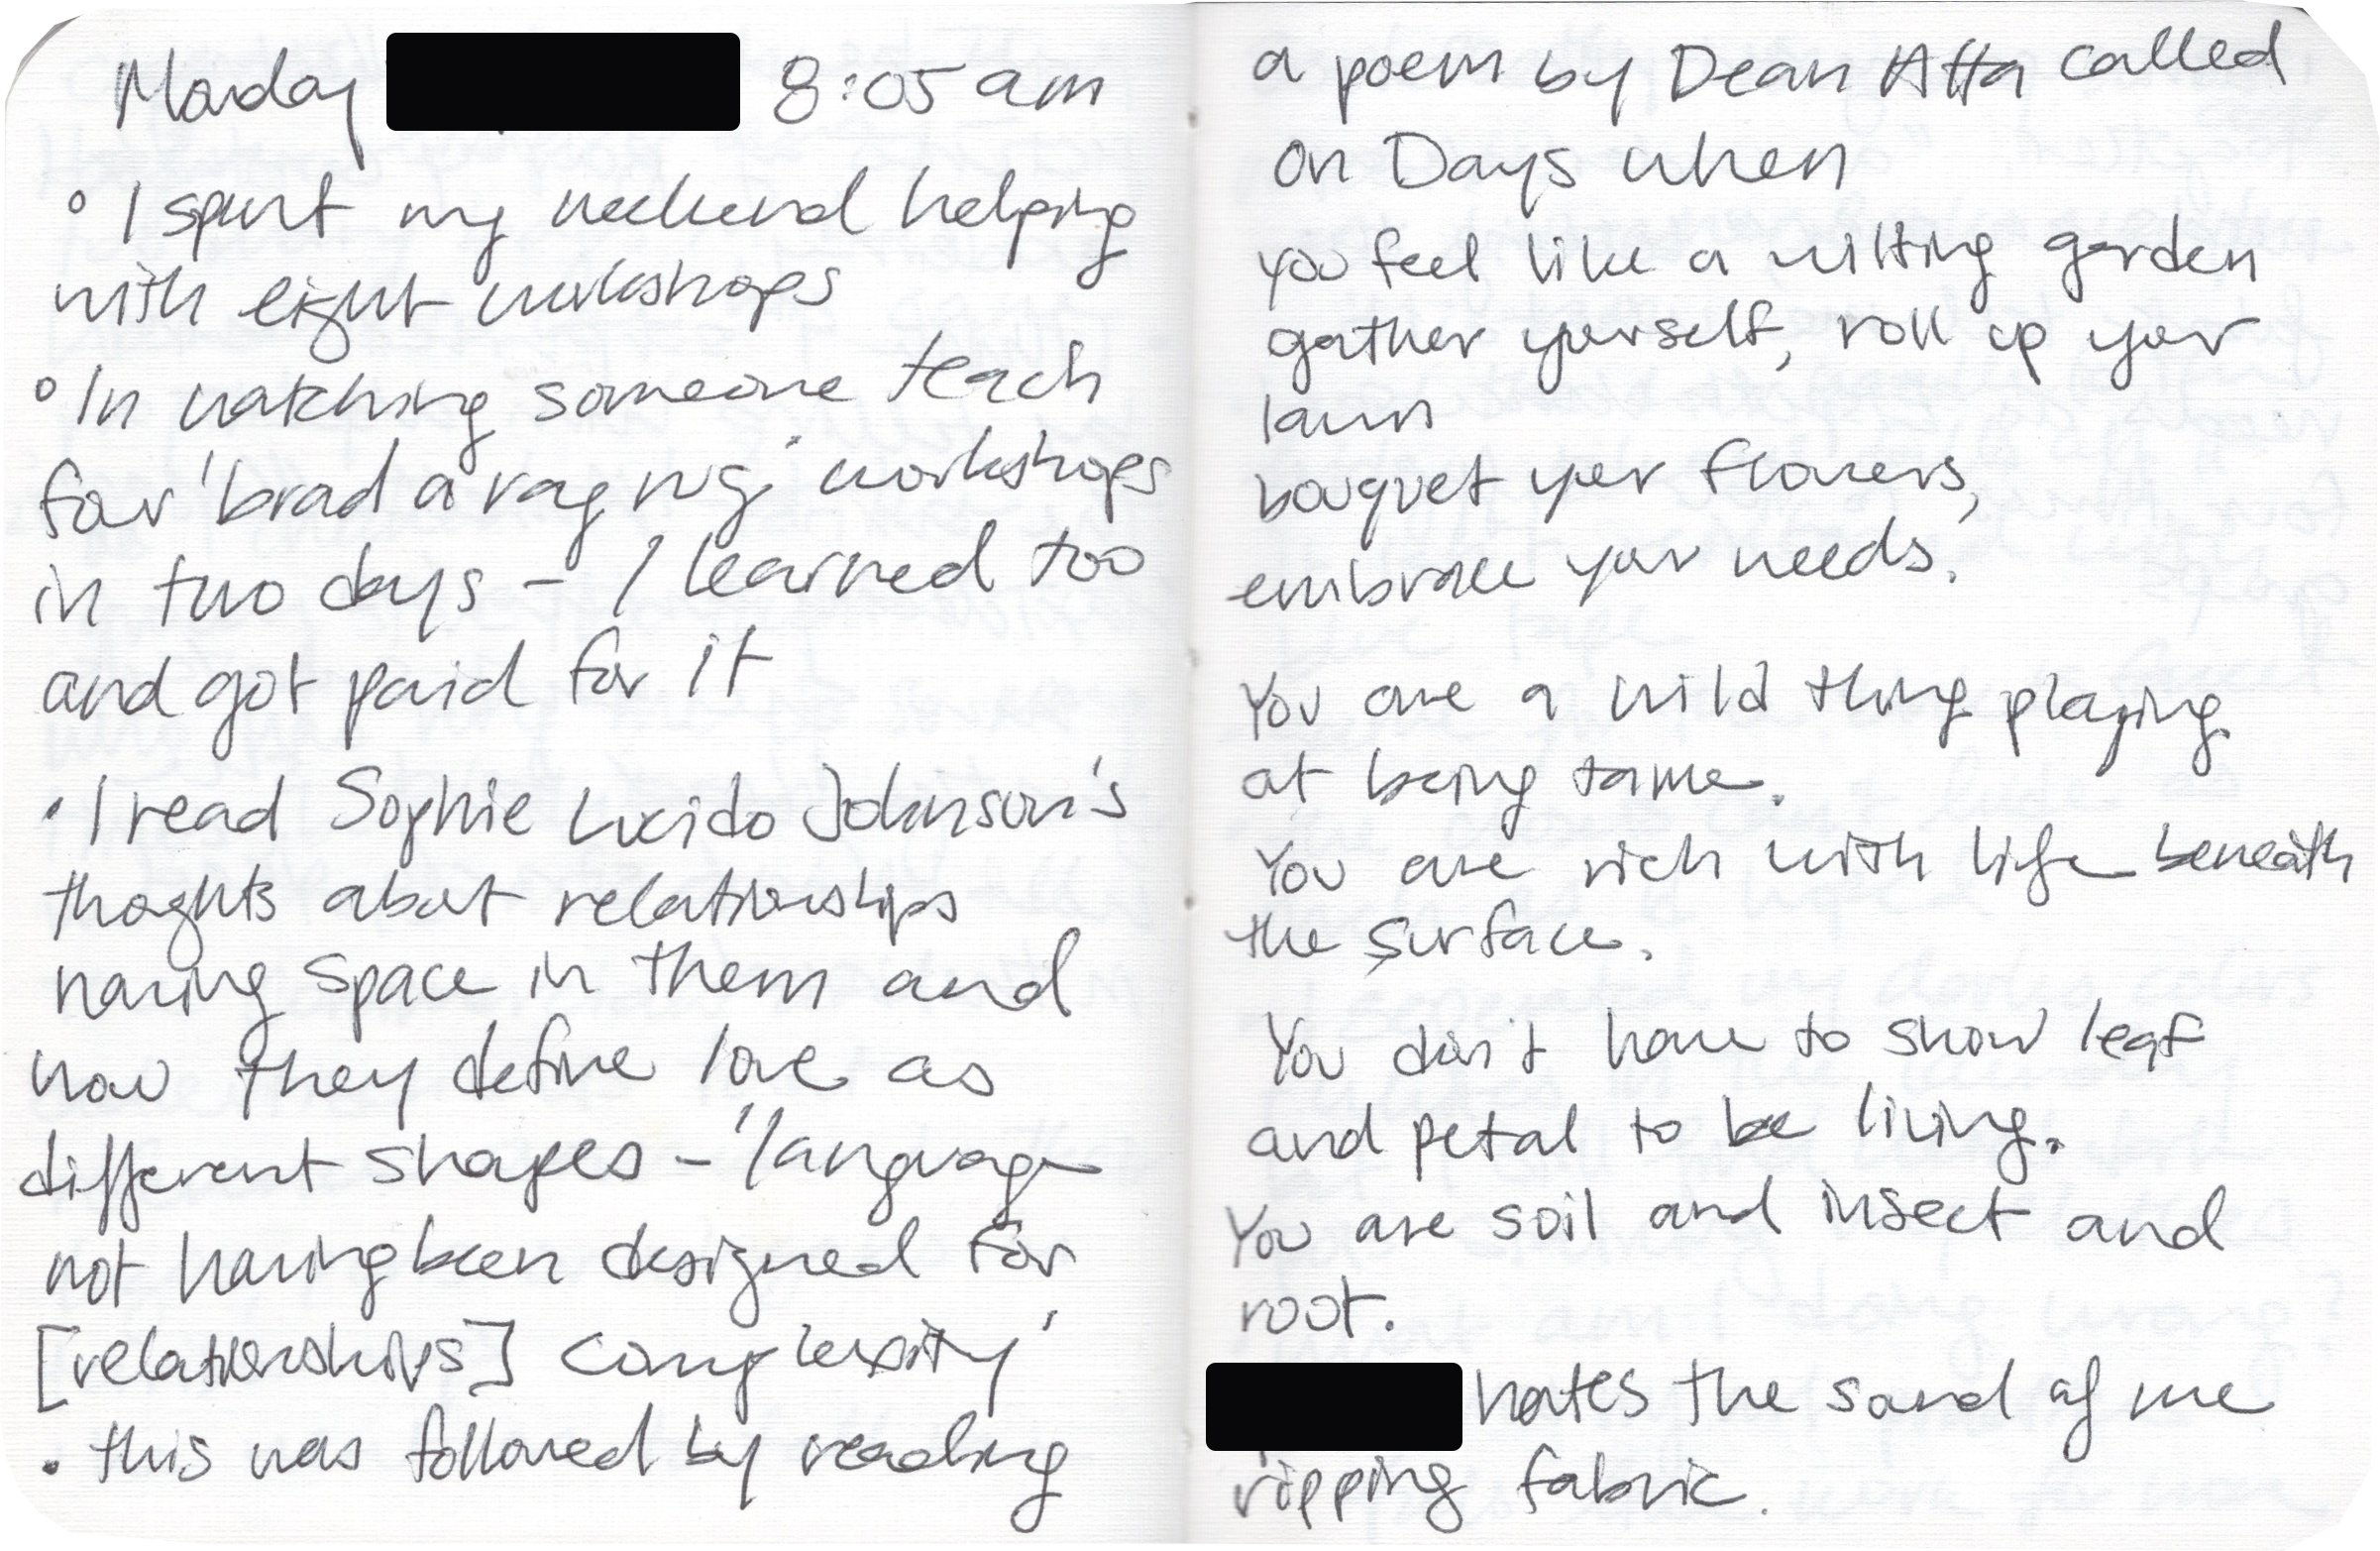 Monday 8:05 am
° I spent my weekend helping
with eight workshops
° In watching someone teach
four 'braid a rag rug' workshops
in two days – I learned too
and got paid for it
• I read Sophie Lucido Johnson's
thoughts about relationships
having space in them and
how they define love as
different shapes – 'language
not having been designed for
[relationships] complexity'
• this was followed by reading
a poem by Dean Atta called
On Days when
you feel like a wilting garden
gather yourself, roll up your
lawn
bouquet your flowers,
embrace your needs.
You are a wild thing playing
at being tame.
You are rich with life beneath
the surface.
You don't have to show leaf
and petal to be living.
You are soil and insect and
root.
hates the sound of me
ripping fabric.